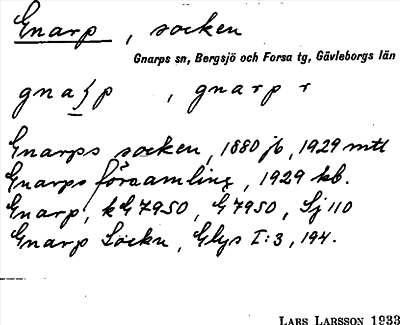 Gnarp, socken
Gnarps sn, Bergsjö och Forsa tg, Gävleborgs län
gna}p, gnarp r
Gnarps socken, 1880 jb, 1929 mtl
Gnarps församling, 1929 kb.
Gnarp, kG 7950, G 7950, Sj 110
Gnarp Sockn, Glys I:3, 194.
LARS LARSSON 1933